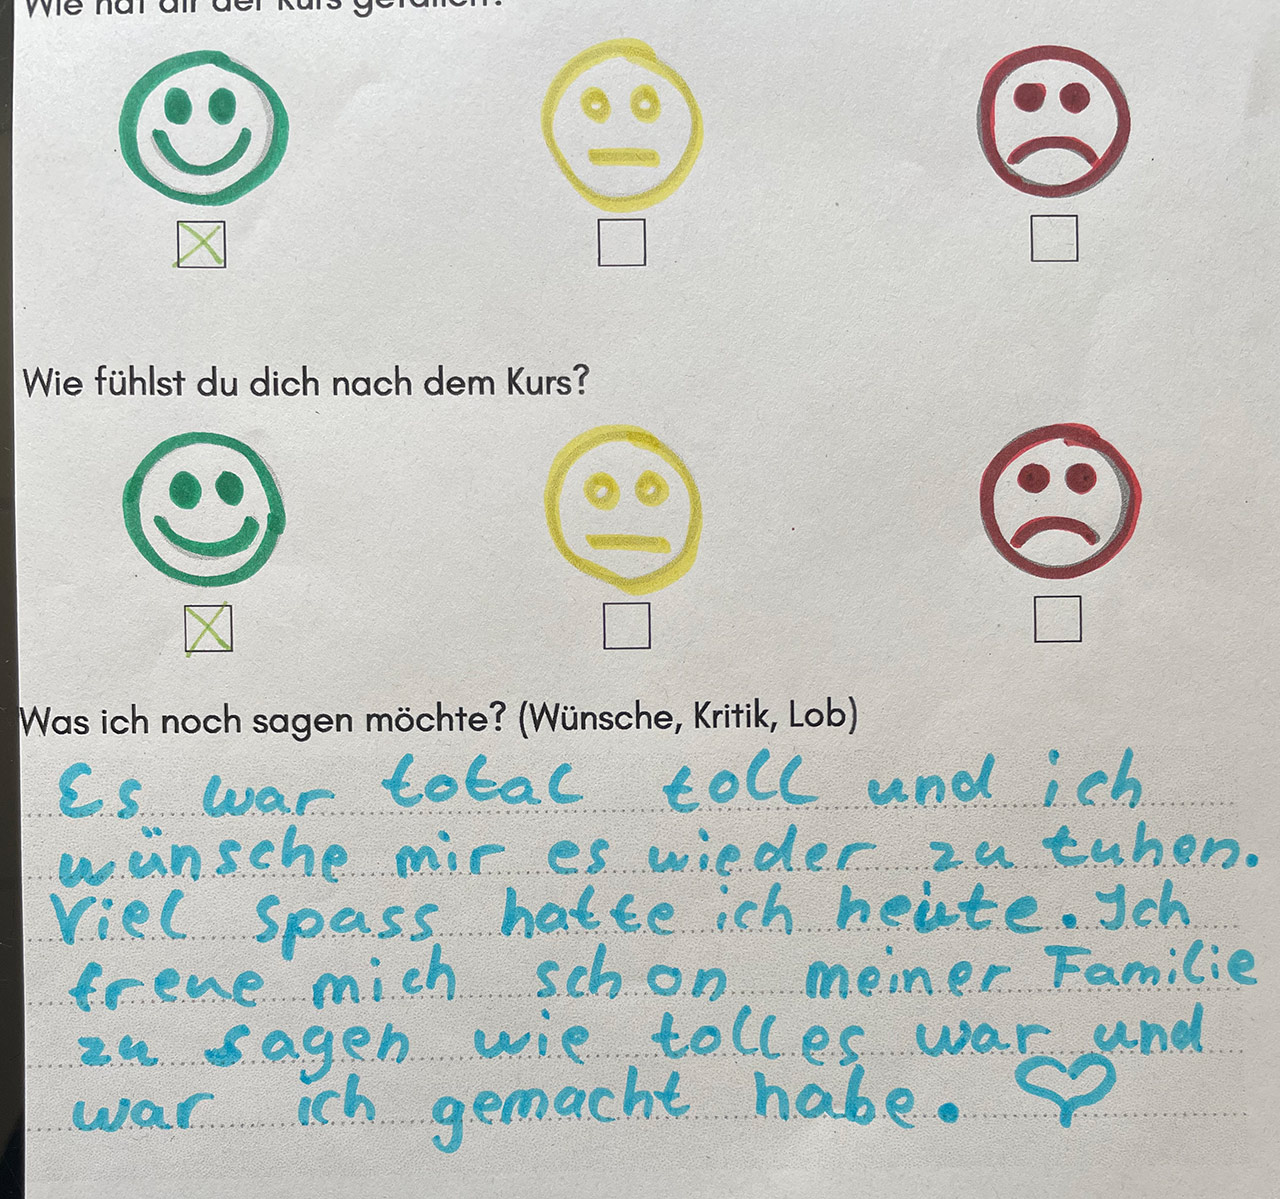 Wie hat dir der Kurs gefallen?
Wie fühlst du dich nach dem Kurs?
Was ich noch sagen möchte? (Wünsche, Kritik, Lob)
Es war total toll und ich
wünsche mir es wieder zu tuhen.
Viel spass hatte ich heute. Ich
freue mich schon meiner Familie
zu sagen wie toll es war und
war ich gemacht habe.